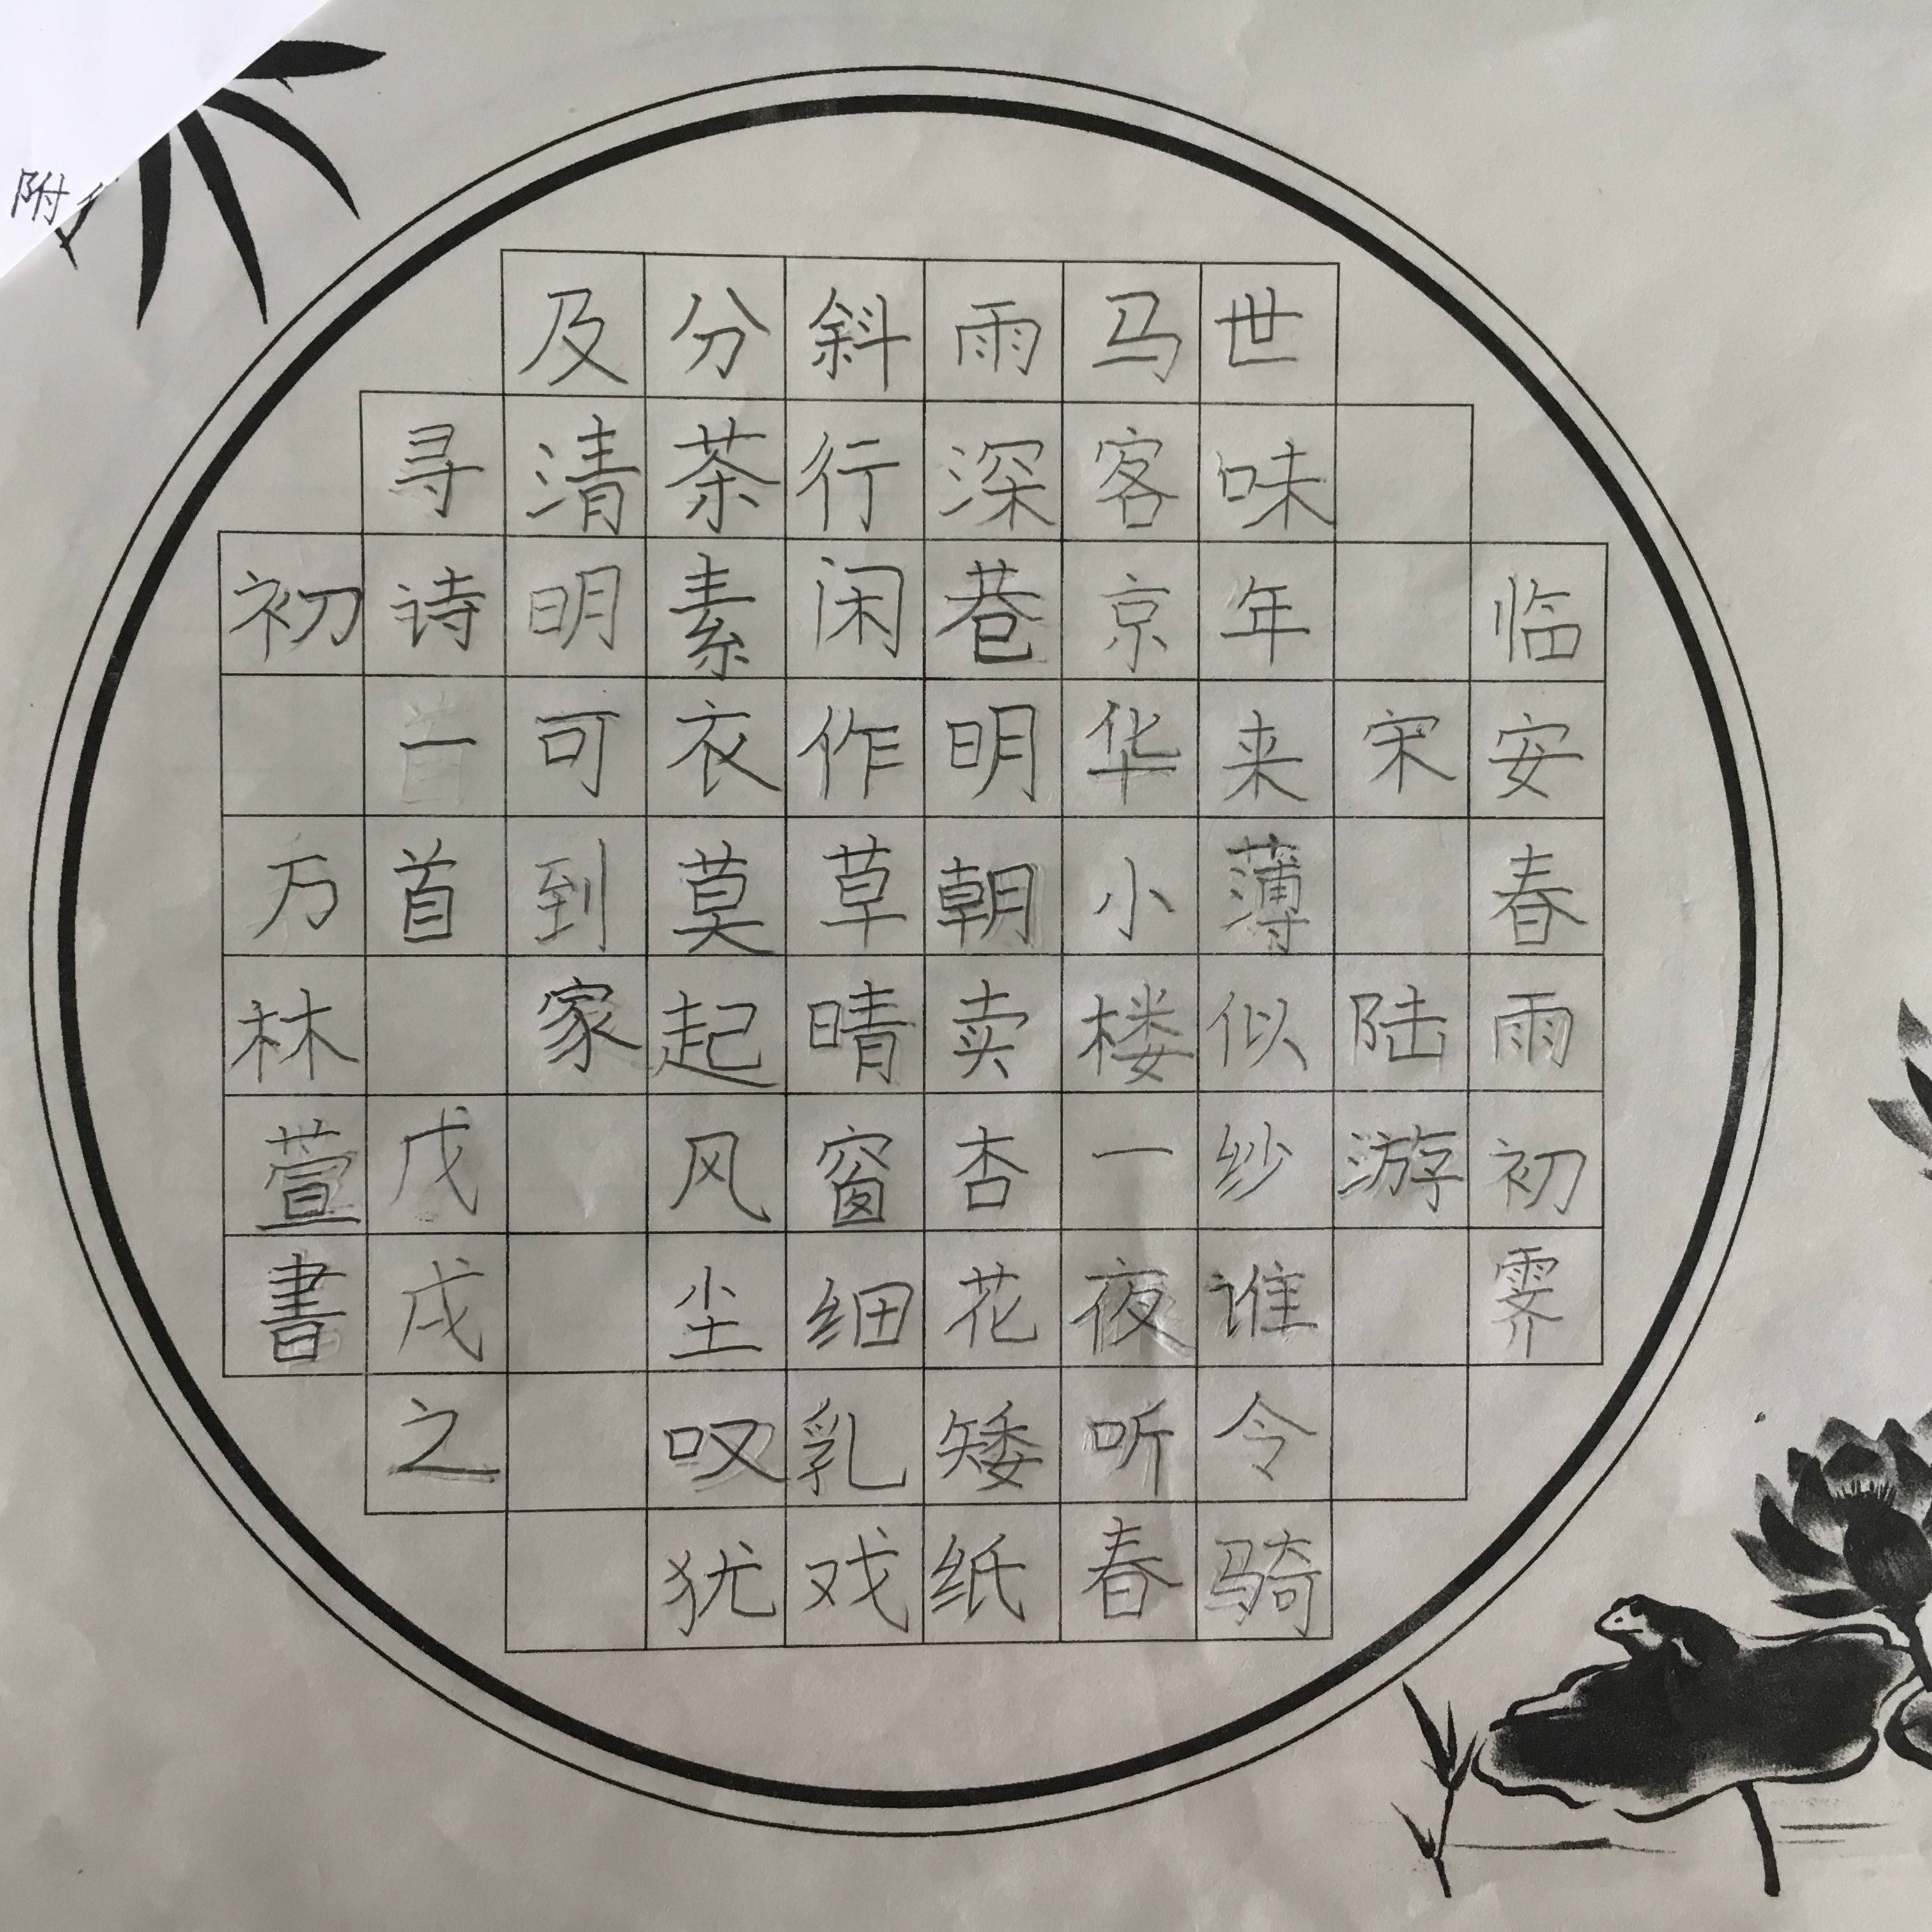 附
临安春雨初霁
宋 陆游
世味年来薄似纱谁令骑
马客京华小楼一夜听春
雨深巷明朝卖杏花矮纸
斜行闲作草晴窗细乳戏
分茶素衣莫起风尘叹犹
及清明可到家
寻诗一首 戊戌之
初 方林萱書